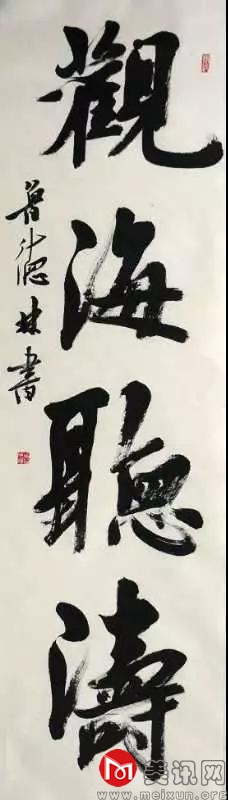 觀海聽濤
德林書
美讯网
www.meixun.org